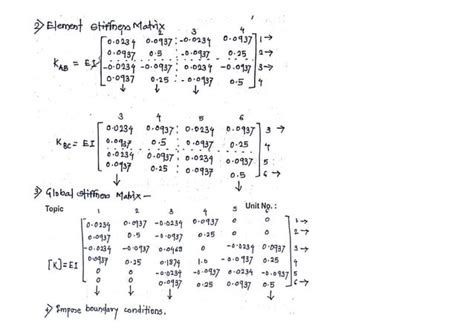 2) Element Stiffness Matrix
1 2 3 4
0.0234 0.0937 -0.0234 0.0937 1→
0.0937 0.5 -0.0937 0.25 2→
KAB = EI
-0.0234 -0.0937 0.0234 -0.0937 3→
0.0937 0.25 -0.0937 0.5 4
3 4 5 6
0.0234 0.0937 0.0234 0.0937 3 →
KBC = EI
0.0937 0.5 0.0937 0.25 4
0.0234 0.0937 0.0234 0.0937 5
0.0937 0.25 0.0937 0.5 6→
3) Global stiffness Matrix –
Topic Unit No. :
1 2 3 4 5
0.0234 0.0937 -0.0234 0.0937 0 0 1→
0.0937 0.5 -0.0937 0.25 0 0 2→
-0.0234 -0.0937 0.0468 0 -0.0234 0.0937 3→
[K]=EI
0.0937 0.25 0.1874 1.0 -0.0937 0.25 4
0 0 -0.0234 -0.0937 0.0234 -0.0937 5
0 0 0.0937 0.25 0.0937 0.5 6→
4) Impose boundary conditions.